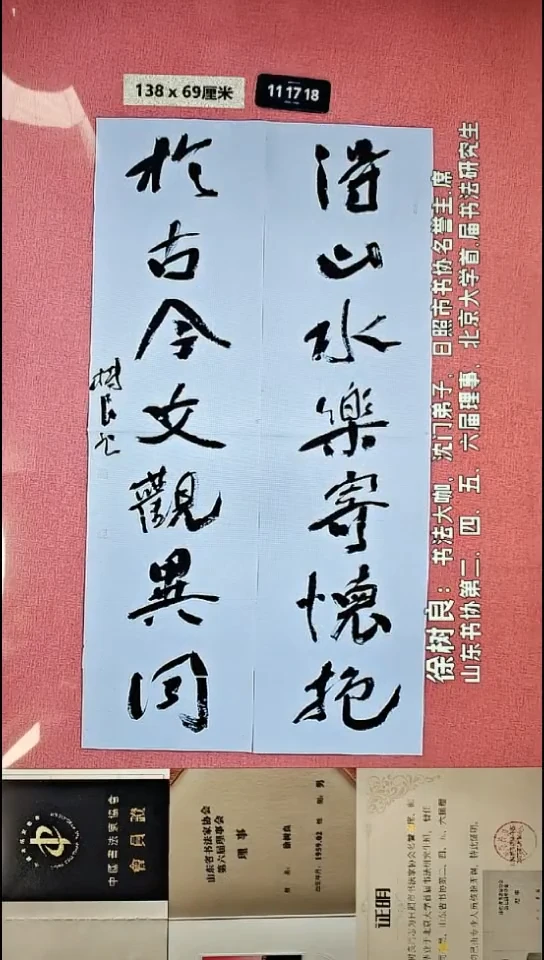 138 x 69厘米
11 17 18
得山水樂寄懷抱
於古今文觀異同
樹良书
徐树良：书法大咖，沈门弟子，日照市书协名誉主席
山东书协第二．四．五．六届理事，北京大学首届书法研究生
中國書法家協會
會員證
山东省书法家协会
第六届理事会
理事
徐树良
男
1959.02
证明